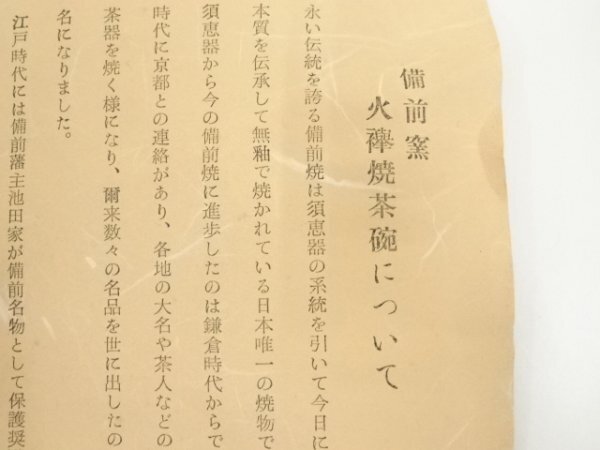 備前窯
火襷焼茶碗について
永い伝統を誇る備前焼は須恵器の系統を引いて今日に
本質を伝承して無釉で焼かれている日本唯一の焼物で
須恵器から今の備前焼に進歩したのは鎌倉時代からで
時代に京都との連絡があり、各地の大名や茶人などの
茶器を焼く様になり、爾来数々の名品を世に出したの
名になりました。
江戸時代には備前藩主池田家が備前名物として保護奨